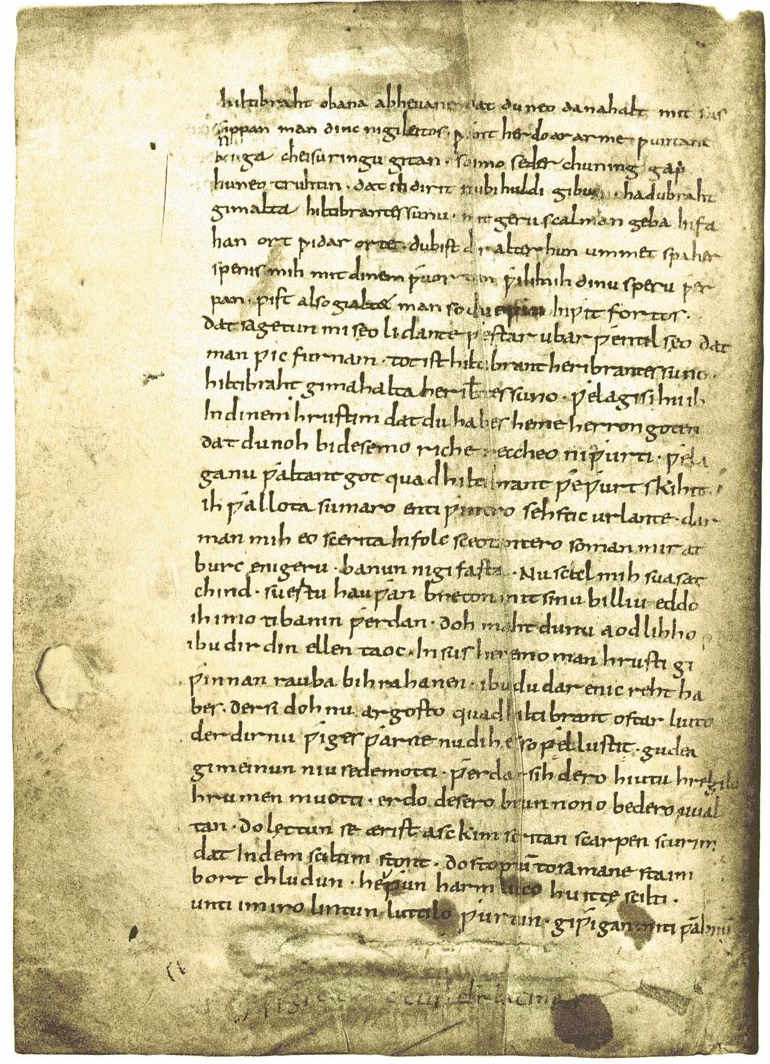 hiltibraht obana abheuane dat du neo danahalt mit sus
sippan man dinc nigileitos · ƿant her do ar arme ƿuntane
bauga cheisuringu gitan · so imo seder chuning gap
huneo truhtin · dat ih dir it nu bi huldi gibu · hadubraht
gimalta hiltibrantes sunu · mit geru scal man geba infa
han ort ƿidar orte · du bist dir alter hun ummet spaher
spenis mih mit dinem ƿuortun ƿili mih dinu speru ƿer
pan · pist also gialtet man so du eƿin inƿit fortos ·
dat sagetun mi seo lidante ƿestar ubar ƿentilseo dat
man ƿic furnam · tot ist hiltibrant heribrantes suno ·
hiltibraht gimahalta heribtes suno · ƿela gisihu ih
In dinem hrustim dat du habes heme herron goten
dat du noh bi desemo riche reccheo ni ƿurti · ƿela
ga nu ƿaltant got quad hiltibrant ƿeƿurt skihit ·
ih ƿallota sumaro enti ƿintro sehstic urlante · dar
man mih eo scerita In folc sceotantero so man mir at
burc enigeru · banun ni gifasta · Nu scal mih suasat
chind · suertu hauƿan breton mit sinu billiu eddo
ih imo ti banin ƿerdan · doh maht du nu aodlihho
ibu dir din ellen taoc · In sus heremo man hrusti gi
ƿinnan rauba bihrahanen · ibu du dar enic reht ha
bes · der si doh nu argosto quad hiltibrant ostarliuto
der dir nu ƿiges ƿarne nu dih es so ƿel lustit · gudea
gimeinun niuse de motti · ƿerdar sih dero hiutu hregilo
hrumen muotti · erdo desero brunnono bedero uual
tan · do lęttun se ærist asckim scritan scarpen scurim
dat In dem sciltim stont · do stoptū tosamane staim
bort chludun · heƿun harmlicco huitte scilti ·
unti im iro lintun luttilo ƿurtun · giƿigan miti ƿabnū